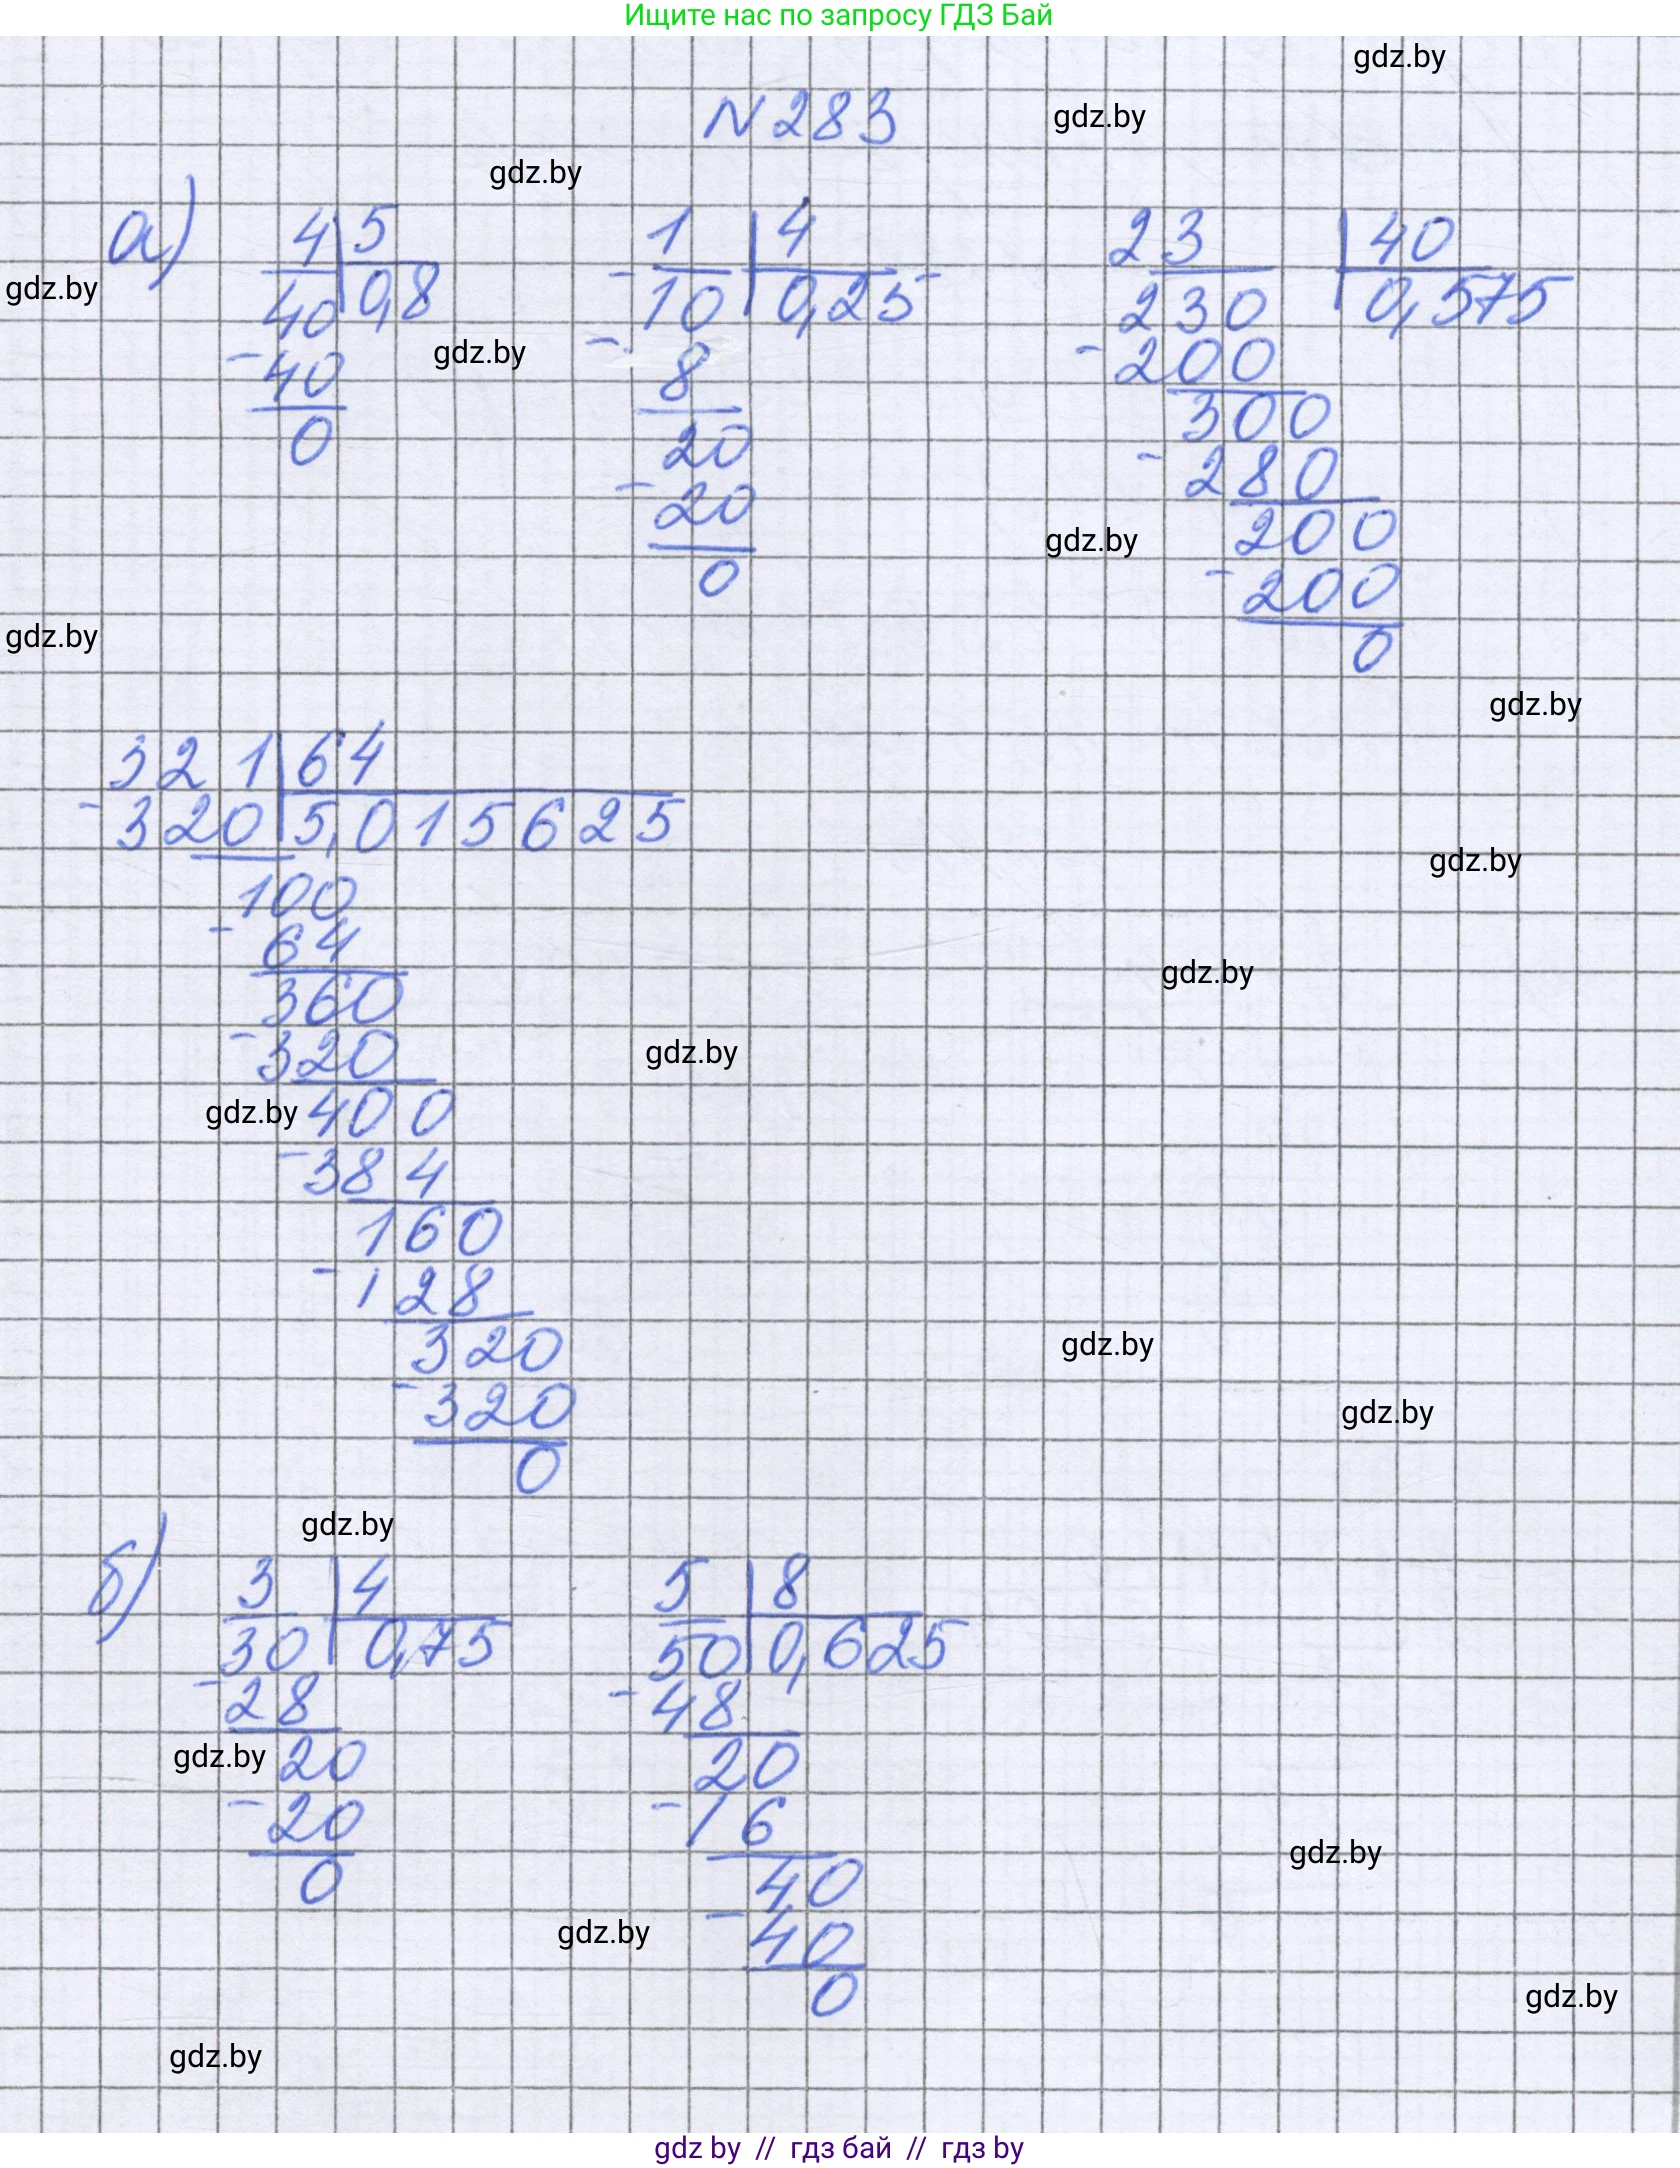 Ищите нас по запросу ГДЗ Бай
gdz.by
N 283
gdz.by
gdz.by
а) 4 | 5
40 | 0,8
- 40
0
1 | 4
- 10 | 0,25
- 8
20
- 20
0
23 | 40
230 | 0,575
- 200
300
- 280
200
- 200
0
gdz.by
gdz.by
gdz.by
gdz.by
gdz.by
321 | 64
- 320 | 5,015625
100
- 64
360
- 320
400
- 384
160
- 128
320
- 320
0
gdz.by
gdz.by
gdz.by
gdz.by
gdz.by
gdz.by
gdz.by
б) 3 | 4
30 | 0,75
- 28
20
- 20
0
5 | 8
50 | 0,625
- 48
20
- 16
40
- 40
0
gdz.by
gdz.by
gdz.by
gdz.by
gdz.by
gdz by // гдз бай // гдз by